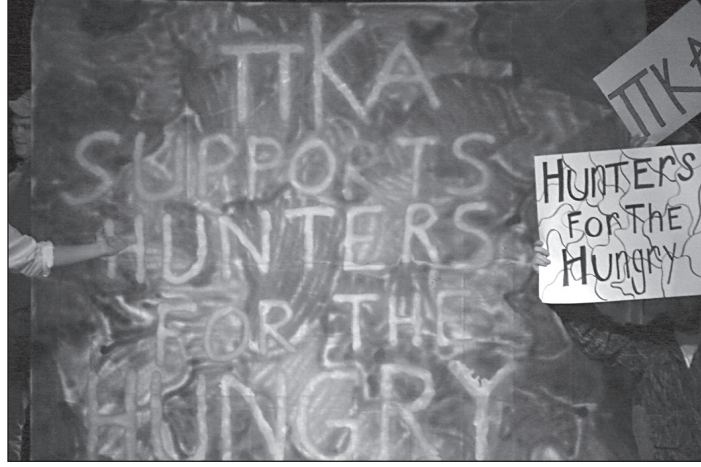 ΠΚΑ
SUPPORTS
HUNTERS
FOR THE
HUNGRY
ΠΚΑ
HUNTERS
FOR THE
HUNGRY